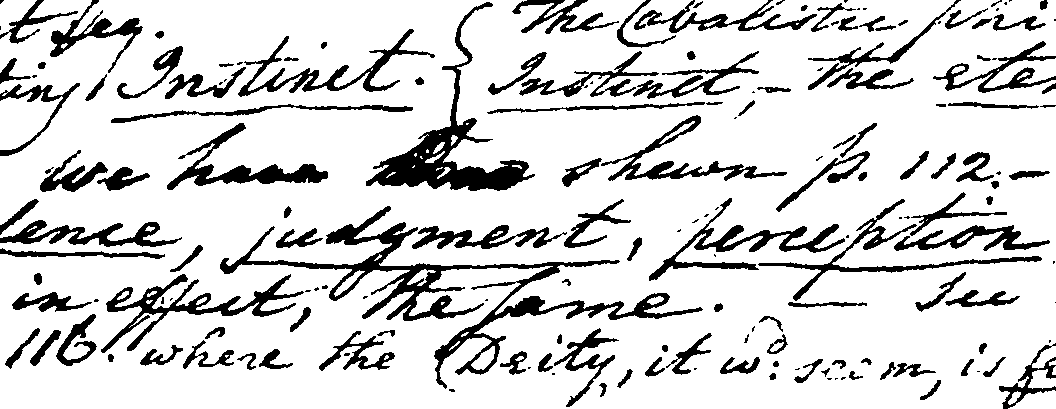 t seq.
The Cabalistic phi
ting Instinct.
Instinct, – the eter
we have shewn p. 112. –
dence, judgment, perception
in effect, the same. — see
116. where the Deity, it wd. seem, is